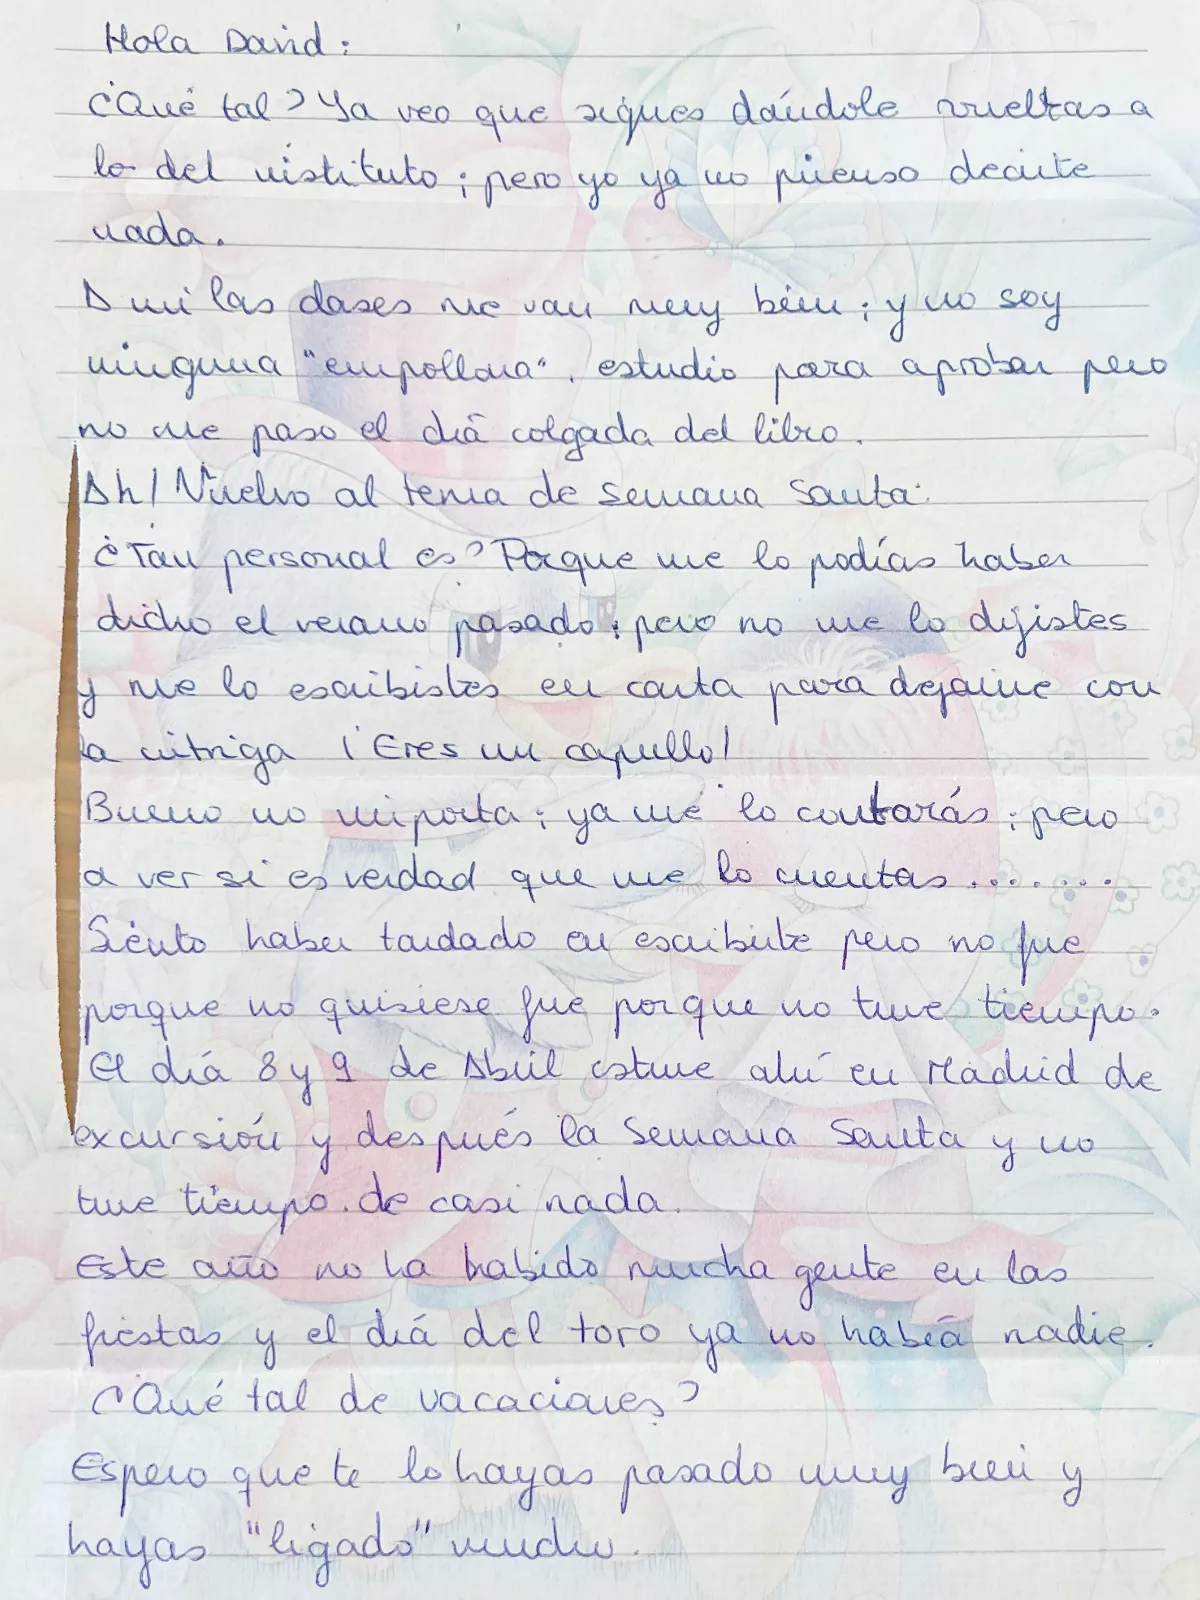 Hola David:
¿Qué tal? Ya veo que sigues dándole vueltas a
lo del instituto; pero yo ya no pienso decirte
nada.
A mí las clases me van muy bien; y no soy
ninguna "empollona". estudio para aprobar pero
no me paso el día colgada del libro.
Ah! Vuelvo al tema de Semana Santa:
¿Tan personal es? Porque me lo podías haber
dicho el verano pasado; pero no me lo dijistes
y me lo escribistes en carta para dejarme con
la intriga ¡Eres un capullo!
Bueno no importa; ya me lo contarás; pero
a ver si es verdad que me lo cuentas........
Siento haber tardado en escribirte pero no fue
porque no quisiese fue porque no tuve tiempo.
El día 8 y 9 de Abril estuve ahí en Madrid de
excursión y después la Semana Santa y no
tuve tiempo. de casi nada.
Este año no ha habido mucha gente en las
fiestas y el día del toro ya no había nadie.
¿Qué tal de vacaciones?
Espero que te lo hayas pasado muy bien y
hayas "ligado" mucho.